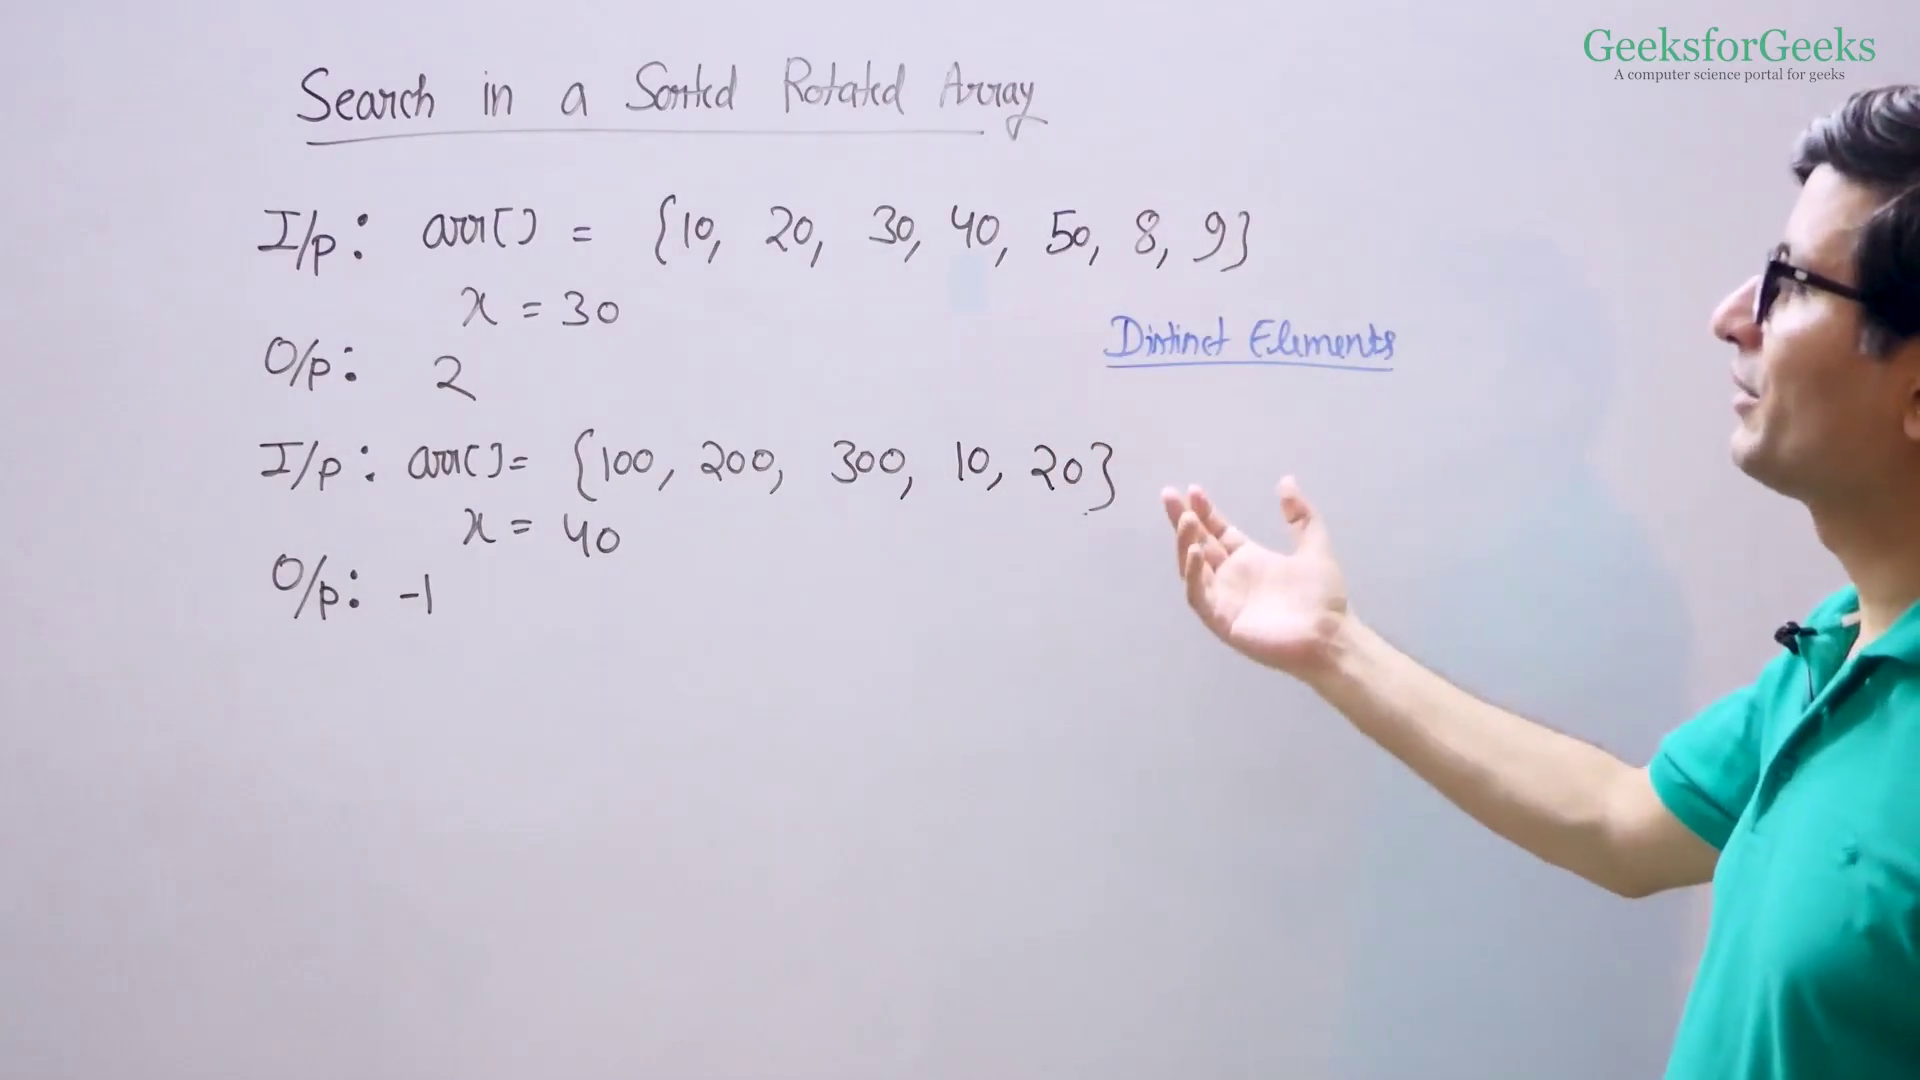 GeeksforGeeks
A computer science portal for geeks
Search in a Sorted Rotated Array
I/p: arr[] = {10, 20, 30, 40, 50, 8, 9}
x = 30
Distinct Elements
O/p: 2
I/p: arr[] = {100, 200, 300, 10, 20}
x = 40
O/p: -1